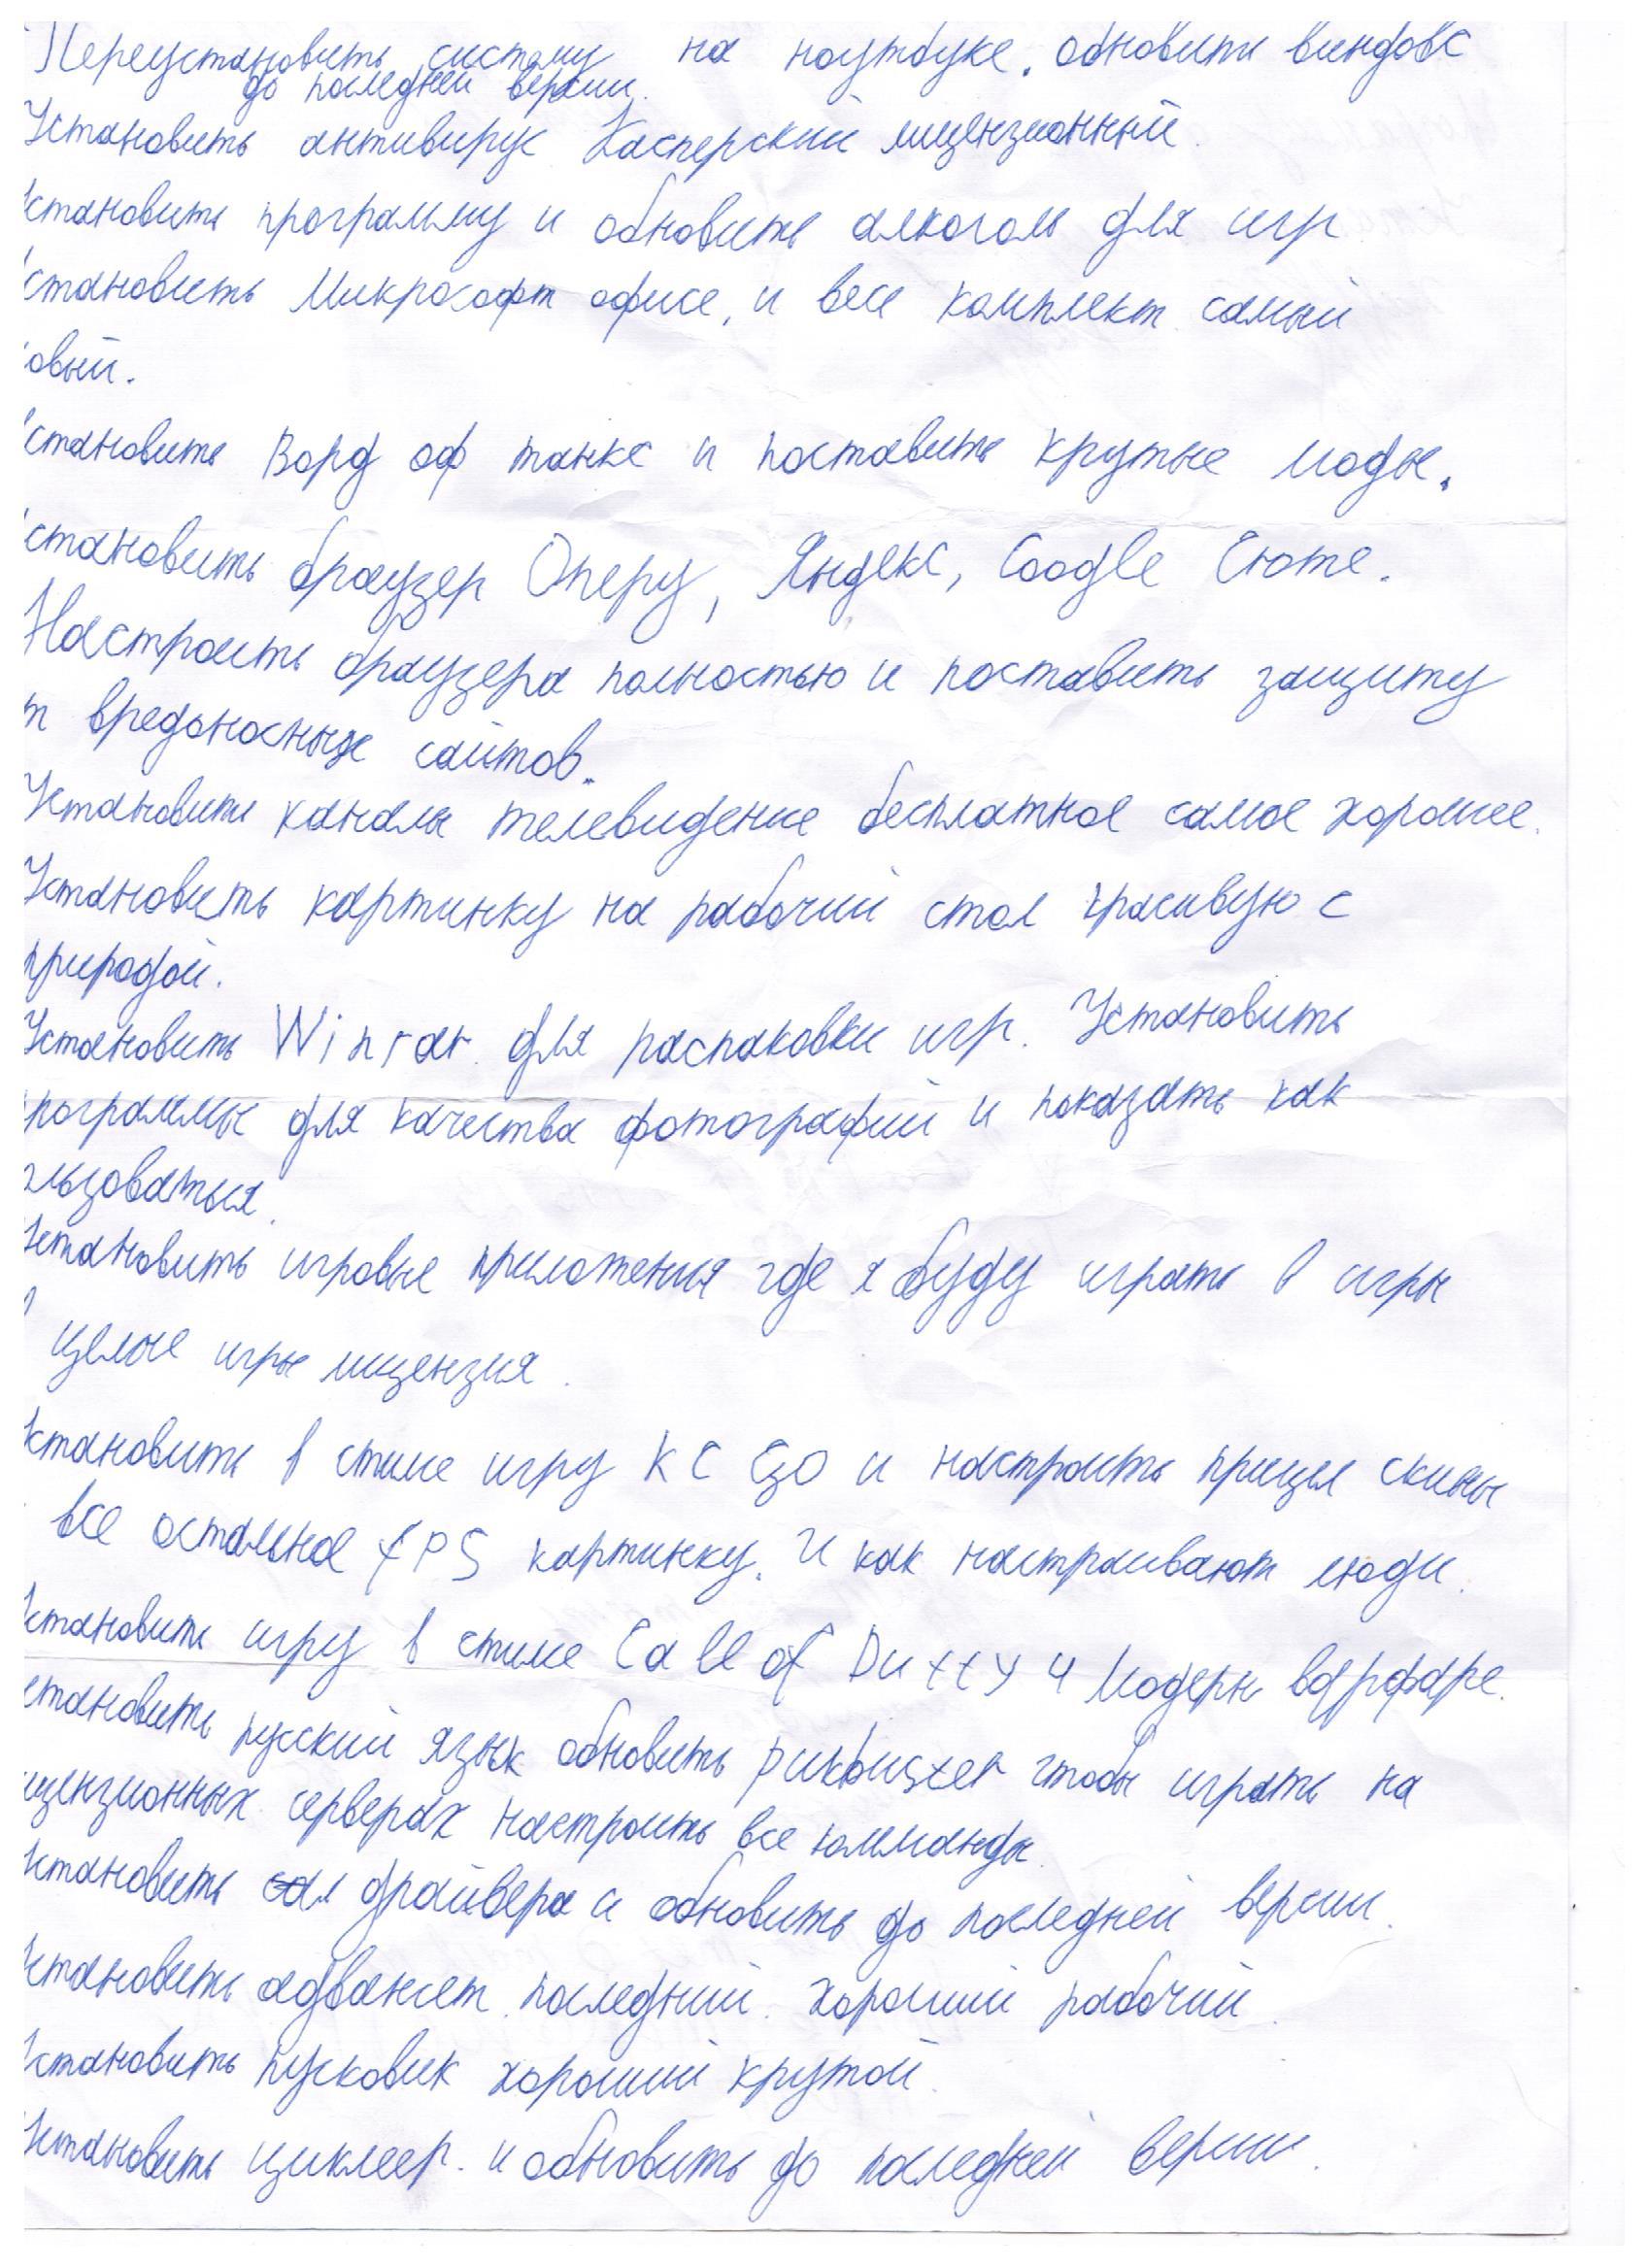 Переустановить систему на ноутбуке. обновить виндовс
до последней версии.
Установить антивирус Касперский лицензионный.
становить программу и обновить алкоголь для игр
становить Микрософт офисе, и весе комплект самый
овый.
становить Ворд оф танкс и поставить крутые моды.
становить браузер Оперу, Яндекс, Google Хроме.
Настроить браузера полностью и поставить защиту
т вредоносных сайтов.
Установить каналы телевидение бесплатное самое хорошее.
Установить картинку на рабочий стол красивую с
природой.
Установить Winrar. для распаковки игр. Установить
рограммы для качества фотографий и показать как
ользоваться.
Установить игровые приложения где я буду играть в игры
в целые игры лицензия.
становить в стиме игру КС ГО и настроить прицел скины
все остальное FPS картинку. И как настраивают люди.
становить игру в стиме Call of Dutty 4 Модерн варфаре.
становить русский язык обновить punkbuster чтобы играть на
ицензионных серверах настроить все комманды.
становить драйвера и обновить до последней версии.
становить адвансет последний. хороший рабочий.
становить пусковик хороший крутой.
Установить циклеер. и обновить до последней версии.